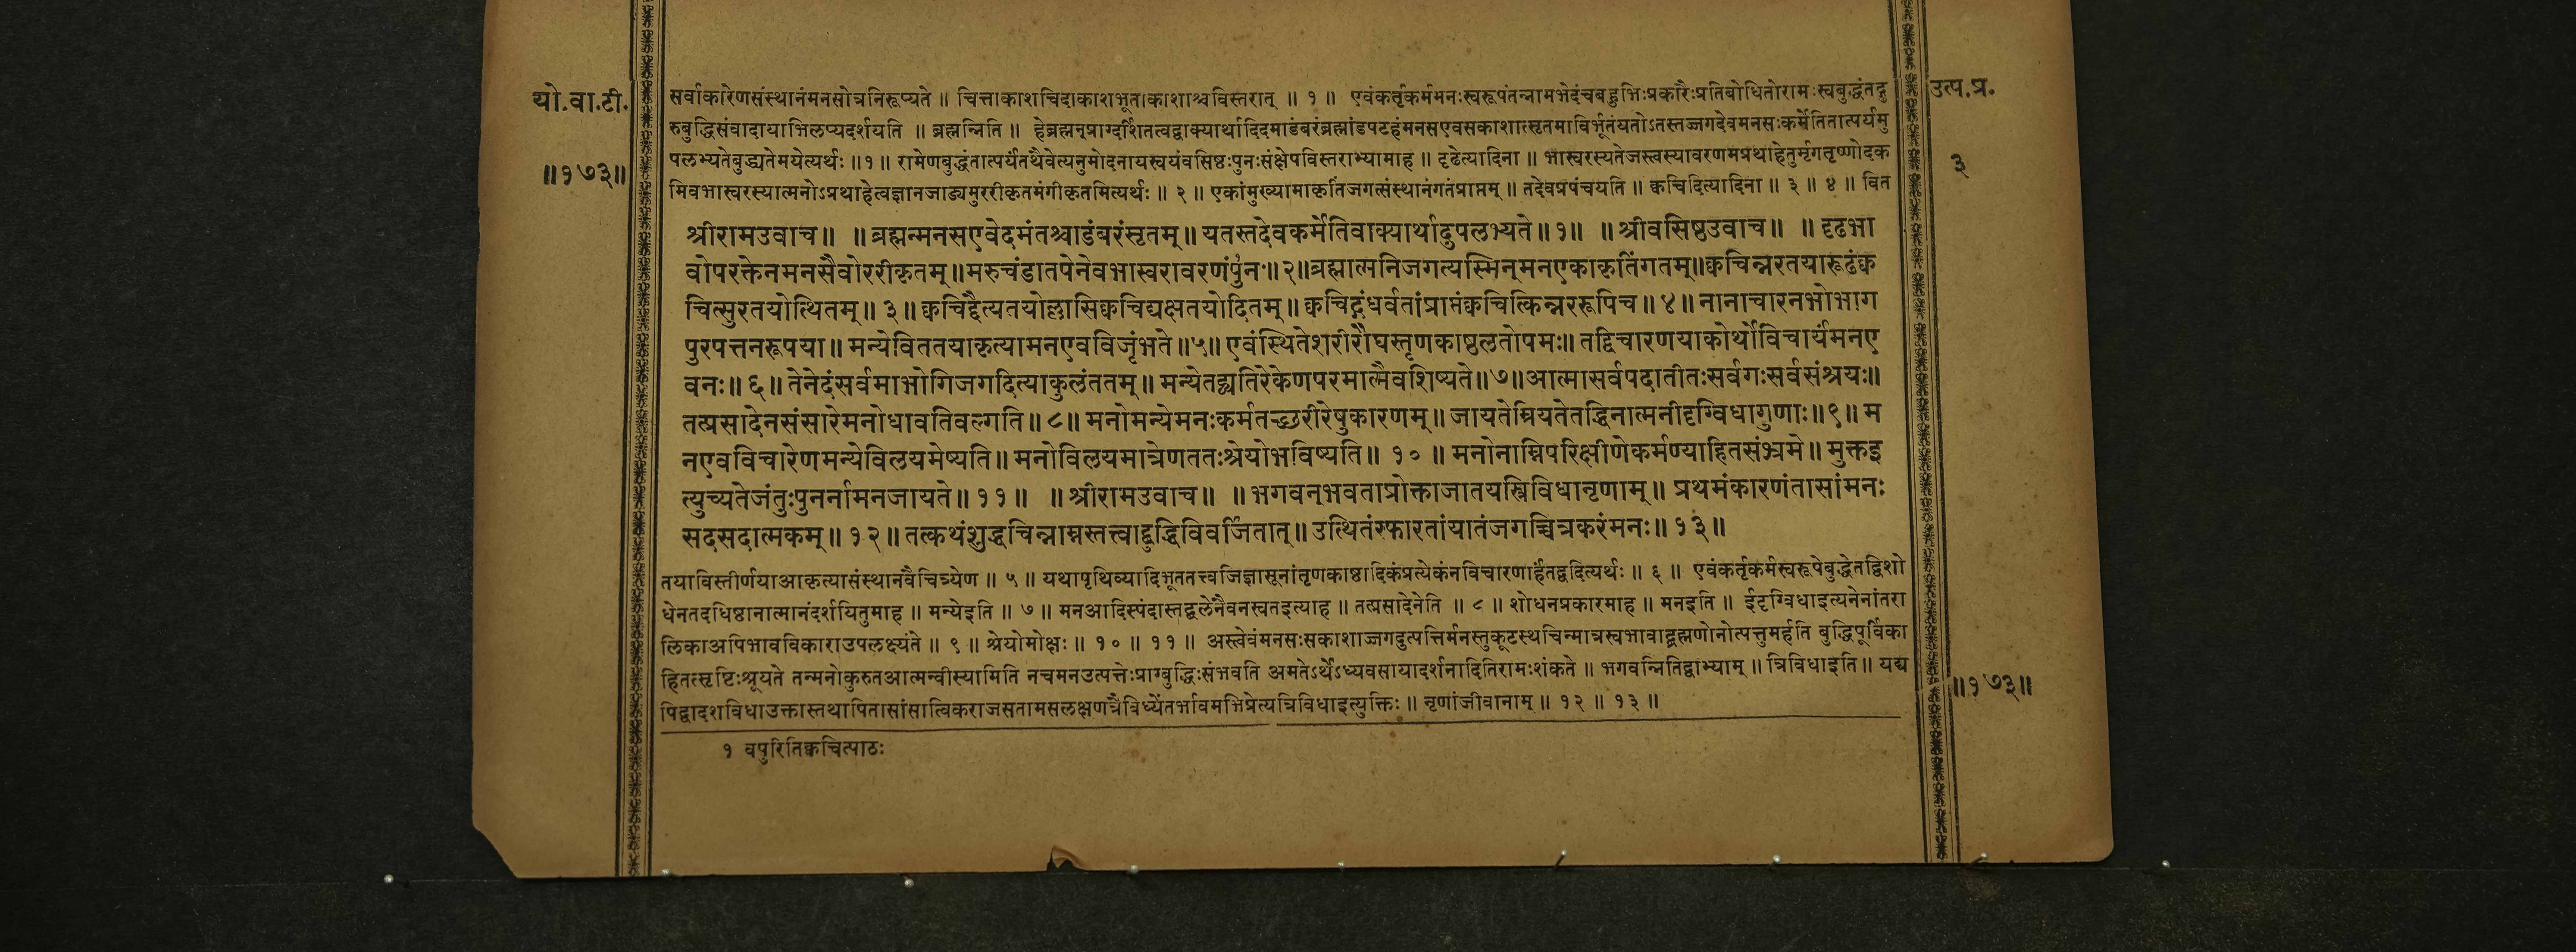 यो.वा.टी.
॥१७३॥
उत्प.प्र.
३
सर्वाकारेणसंस्थानंमनसोत्रनिरूप्यते ॥ चित्ताकाशचिदाकाशभूताकाशाश्चविस्तरात् ॥ १ ॥ एवंकर्तृकर्ममनःस्वरूपंतन्नामभेदंचबहुभिःप्रकारैःप्रतिबोधितोरामःस्वबुद्धंतद्गु
रुबुद्धिसंवादायाभिलप्यदर्शयति ॥ ब्रह्मन्निति ॥ हेब्रह्मन्प्राग्दर्शितत्वद्वाक्यार्थादिदमाडंबरंब्रह्मांडपटहंमनसएवसकाशात्सृतमाविर्भूतंयतोऽतस्तज्जगदेवमनसःकर्मेतितात्पर्यमु
पलभ्यतेबुद्ध्यतेमयेत्यर्थः ॥१॥ रामेणबुद्धंतात्पर्यंतथैवेत्यनुमोदनायस्वयंवसिष्ठःपुनःसंक्षेपविस्तराभ्यामाह ॥ दृढेत्यादिना ॥ भास्वरस्यतेजस्वस्यावरणमप्रथाहेतुर्मृगतृष्णोदक
मिवभास्वरस्यात्मनोऽप्रथाहेत्वज्ञानजाड्यमुररीकृतमंगीकृतमित्यर्थः ॥ २ ॥ एकांमुख्यामाकृतिंजगत्संस्थानंगतंप्राप्तम् ॥ तदेवप्रपंचयति ॥ क्वचिदित्यादिना ॥ ३ ॥ ४ ॥ वित
श्रीरामउवाच ॥ ॥ ब्रह्मन्मनसएवेदमंतश्चाडंबरंसृतम् ॥ यतस्तदेवकर्मेतिवाक्यार्थादुपलभ्यते ॥ १ ॥ ॥ श्रीवसिष्ठउवाच ॥ ॥ दृढभा
वोपरक्तेनमनसैवोररीकृतम् ॥ मरुचंडातपेनेवभास्वरावरणंपुनः ॥ २ ॥ ब्रह्मात्मनिजगत्यस्मिन्मनएकाकृतिंगतम् ॥ क्वचिन्नरतयारूढंक्व
चित्सुरतयोत्थितम् ॥ ३ ॥ क्वचिद्दैत्यतयोल्लासिक्वचिद्यक्षतयोदितम् ॥ क्वचिद्गंधर्वतांप्राप्तंक्वचित्किन्नररूपिच ॥ ४ ॥ नानाचारनभोभाग
पुरपत्तनरूपया ॥ मन्येविततयाकृत्यामनएवविजृंभते ॥ ५ ॥ एवंस्थितेशरीरौघस्तृणकाष्ठलतोपमः ॥ तद्विचारणयाकोर्थोविचार्यंमनए
वनः ॥ ६ ॥ तेनेदंसर्वमाभोगिजगदित्याकुलंततम् ॥ मन्येतद्व्यतिरेकेणपरमात्मैवशिष्यते ॥ ७ ॥ आत्मासर्वपदातीतःसर्वगःसर्वसंश्रयः ॥
तत्प्रसादेनसंसारेमनोधावतिवल्गति ॥ ८ ॥ मनोमन्येमनःकर्मतच्छरीरेषुकारणम् ॥ जायतेम्रियतेतद्धिनात्मनीदृग्विधागुणाः ॥ ९ ॥ म
नएवविचारेणमन्येविलयमेष्यति ॥ मनोविलयमात्रेणततःश्रेयोभविष्यति ॥ १० ॥ मनोनाम्निपरिक्षीणेकर्मण्याहितसंभ्रमे ॥ मुक्तइ
त्युच्यतेजंतुःपुनर्नामनजायते ॥ ११ ॥ ॥ श्रीरामउवाच ॥ ॥ भगवन्भवताप्रोक्ताजातयस्त्रिविधानृणाम् ॥ प्रथमंकारणंतासांमनः
सदसदात्मकम् ॥ १२ ॥ तत्कथंशुद्धचिन्नाम्नस्तत्त्वाद्बुद्धिविवर्जितात् ॥ उत्थितंस्फारतांयातंजगच्चित्रकरंमनः ॥ १३ ॥
तयाविस्तीर्णयाआकृत्यासंस्थानवैचित्र्येण ॥ ५ ॥ यथापृथिव्यादिभूततत्त्वजिज्ञासूनांतृणकाष्ठादिकंप्रत्येकंनविचारणार्हंतद्वदित्यर्थः ॥ ६ ॥ एवंकर्तृकर्मस्वरूपेबुद्धेतद्विशो
धेनतदधिष्ठानात्मानंदर्शयितुमाह ॥ मन्येइति ॥ ७ ॥ मनआदिस्पंदास्तद्बलेनैवनस्वतइत्याह ॥ तत्प्रसादेनेति ॥ ८ ॥ शोधनप्रकारमाह ॥ मनइति ॥ ईदृग्विधाइत्यनेनांतरा
लिकाअपिभावविकाराउपलक्ष्यंते ॥ ९ ॥ श्रेयोमोक्षः ॥ १० ॥ ११ ॥ अस्त्वेवंमनसःसकाशाज्जगदुत्पत्तिर्मनस्तुकूटस्थचिन्मात्रस्वभावाद्ब्रह्मणोनोत्पत्तुमर्हति बुद्धिपूर्विका
हितत्सृष्टिःश्रूयते तन्मनोकुरुतआत्मन्वीस्यामिति नचमनउत्पत्तेःप्राग्बुद्धिःसंभवति अमतेऽर्थेऽध्यवसायादर्शनादितिरामःशंकते ॥ भगवन्नितिद्वाभ्याम् ॥ त्रिविधाइति ॥ यद्य
पिद्वादशविधाउक्तास्तथापितासांसात्विकराजसतामसलक्षणत्रैविध्येंतर्भावमभिप्रेत्यत्रिविधाइत्युक्तिः ॥ नृणांजीवानाम् ॥ १२ ॥ १३ ॥
॥१७३॥
१ वपुरितिक्वचित्पाठः